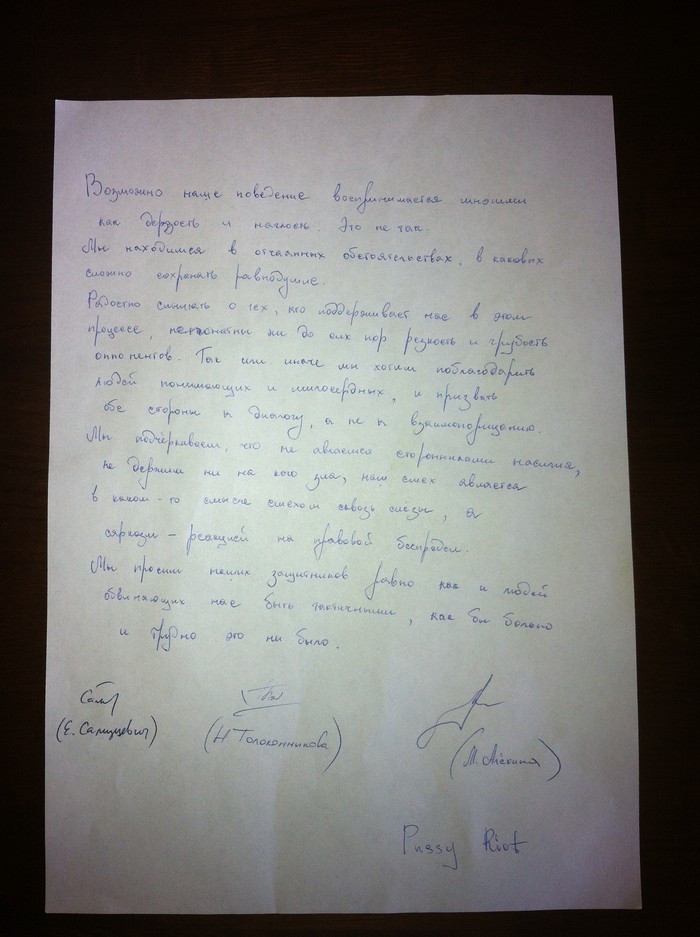 Возможно наше поведение воспринимается многими
как дерзость и наглость. Это не так.
Мы находимся в отчаянных обстоятельствах, в каковых
сложно сохранять равнодушие.
Радостно слышать о тех, кто поддерживает нас в этом
процессе, непонятны ли до сих пор резкость и грубость
оппонентов. Так или иначе мы хотим поблагодарить
людей понимающих и милосердных, и призвать
обе стороны к диалогу, а не к взаимопорицанию.
Мы подчёркиваем, что не являемся сторонниками насилия,
не держим ни на кого зла, наш смех является
в каком-то смысле смехом сквозь слёзы, а
сарказм – реакцией на правовой беспредел.
Мы просим наших защитников равно как и людей
обвиняющих нас быть тактичными, как бы больно
и трудно это ни было.
(Е. Самуцевич) (Н Толоконникова) (М. Алёхина)
Pussy Riot